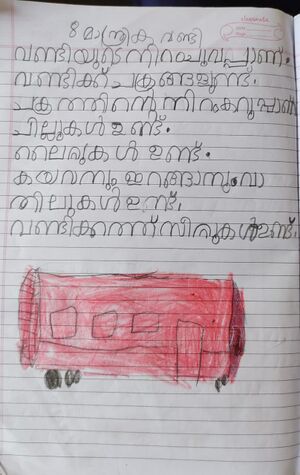 8 മാന്ത്രിക വണ്ടി
വണ്ടിയുടെ നിറം ചുവപ്പാണ്.
വണ്ടിക്ക് ചക്രങ്ങളുണ്ട്.
ചക്രത്തിന്റെ നിറം കറുപ്പാണ്
ചില്ലുകൾ ഉണ്ട്.
ലൈറ്റുകൾ ഉണ്ട്.
കയറാനും ഇറങ്ങാനും വാ
തിലുകൾ ഉണ്ട്.
വണ്ടിക്കകത്ത് സീറ്റുകൾ ഉണ്ട്.